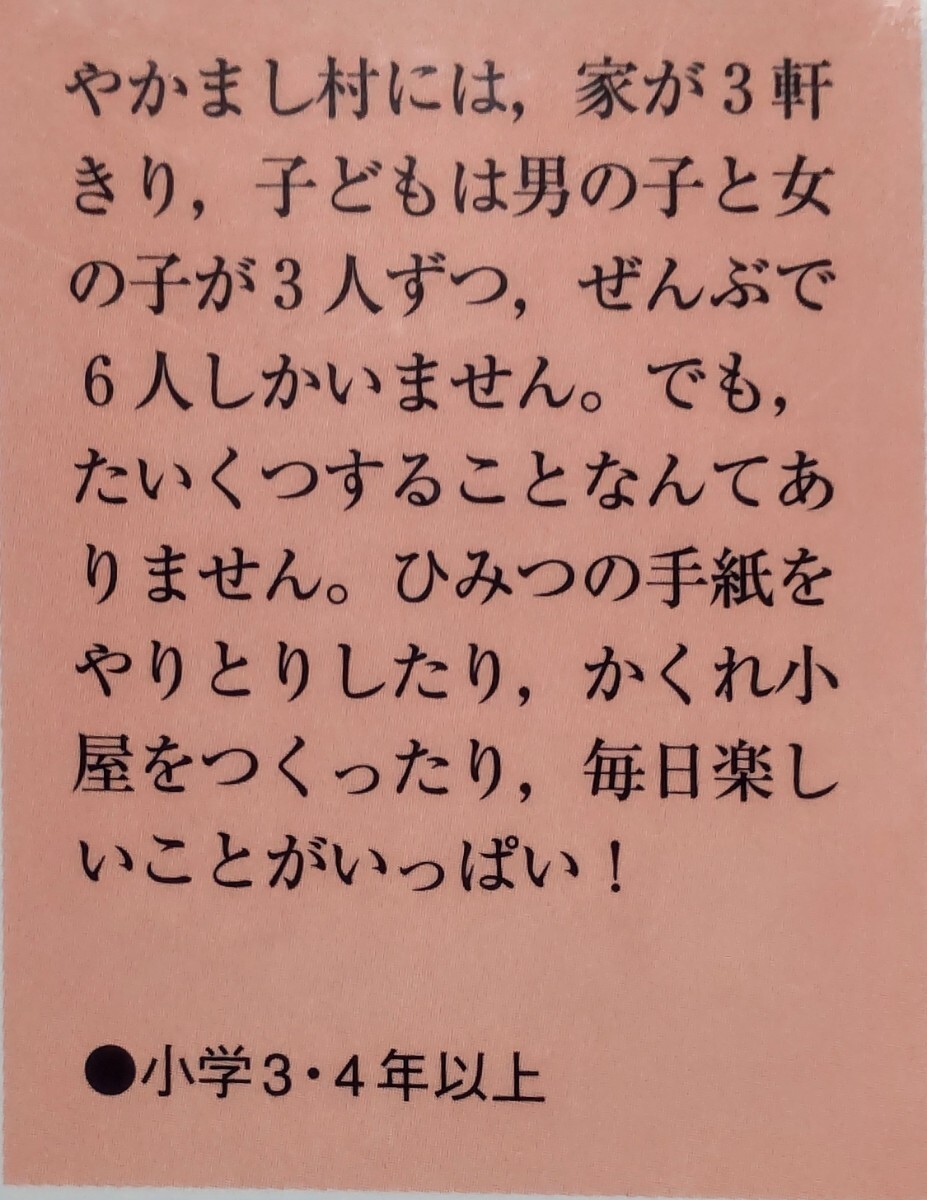 やかまし村には，家が3軒
きり，子どもは男の子と女
の子が3人ずつ，ぜんぶで
6人しかいません。でも，
たいくつすることなんてあ
りません。ひみつの手紙を
やりとりしたり，かくれ小
屋をつくったり，毎日楽し
いことがいっぱい！
●小学3・4年以上